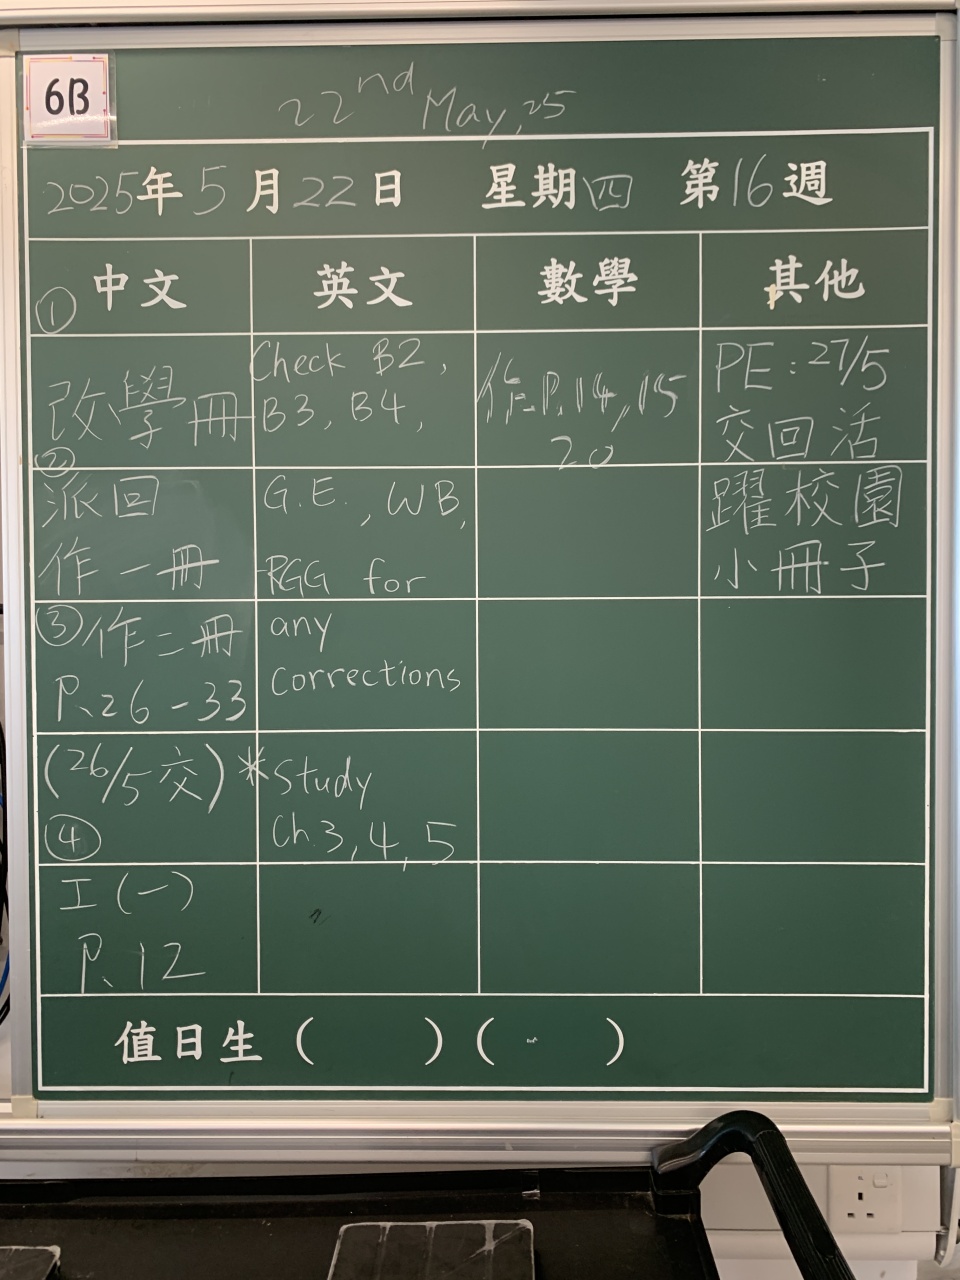 6B
22nd May, 25
2025年5月22日 星期四 第16週
中文
①
改學冊
②
派回
作一冊
③作二冊
P.26-33
(26/5交)
④
工(一)
P.12
英文
Check B2,
B3, B4,
G.E., WB,
RGG for
any
corrections
*Study
Ch.3, 4, 5
數學
作:P.14, 15
20
其他
PE: 27/5
交回活
躍校園
小冊子
值日生 (    ) (    )